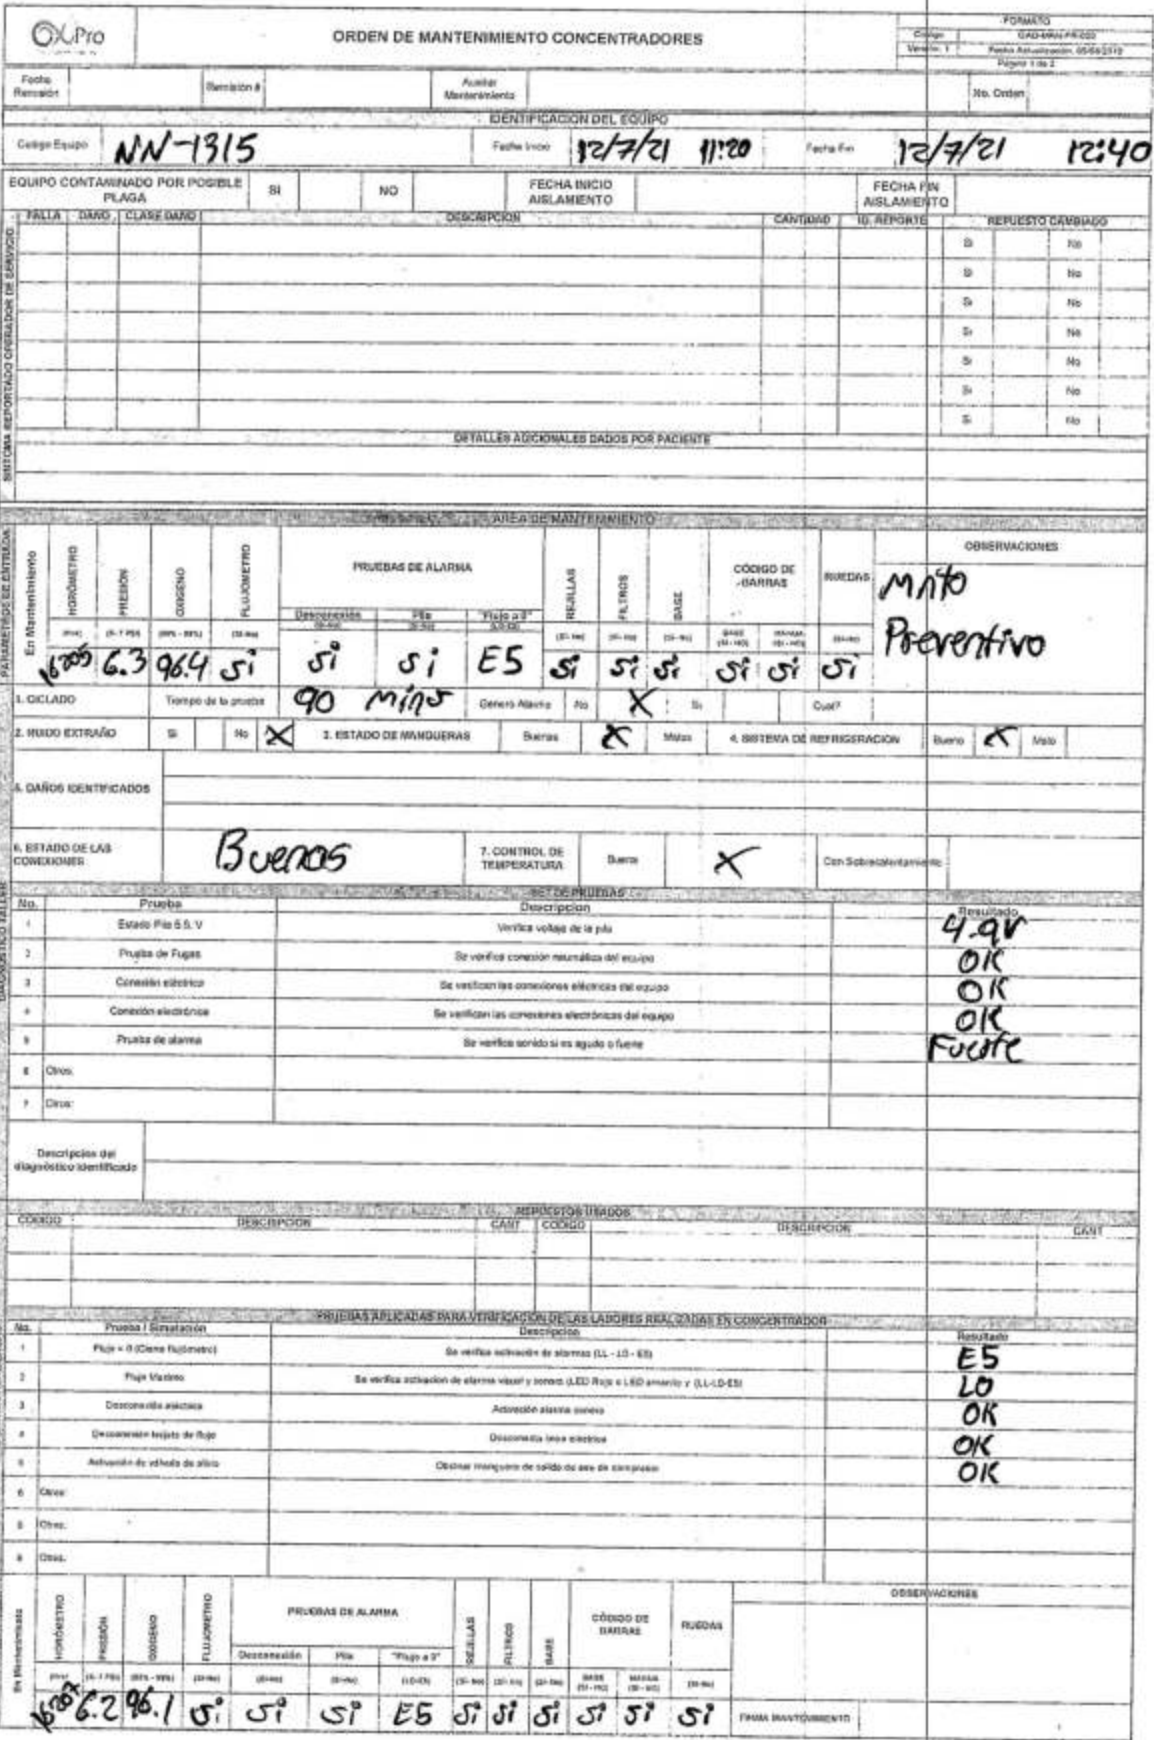 OxPro
ORDEN DE MANTENIMIENTO CONCENTRADORES
FORMATO
Código
Versión: 1 Fecha Actualización: 05/04/2019
Página 1 de 2
Fecha Remisión Remisión # Auxiliar Mantenimiento No. Orden
IDENTIFICACION DEL EQUIPO
Codigo Equipo NN-1315 Fecha Inicio 12/7/21 11:20 Fecha Fin 12/7/21 12:40
EQUIPO CONTAMINADO POR POSIBLE PLAGA SI NO FECHA INICIO AISLAMIENTO FECHA FIN AISLAMIENTO
SINTOMA REPORTADO OPERADOR DE SERVICIO
FALLA DAÑO CLASE DAÑO DESCRIPCION CANTIDAD ID. REPORTE REPUESTO CAMBIADO
Si No
Si No
Si No
Si No
Si No
Si No
Si No
DETALLES ADICIONALES DADOS POR PACIENTE
AREA DE MANTENIMIENTO
PARAMETROS DE ENTRADA
En Mantenimiento HORÓMETRO PRESIÓN OXIGENO FLUJOMETRO PRUEBAS DE ALARMA REJILLAS FILTROS BASE CÓDIGO DE BARRAS RUEDAS OBSERVACIONES
Desconexión Pila "Flujo a 0"
16205 6.3 96.4 Si Si Si E5 Si Si Si Si Si Si
Mnto
Preventivo
1. CICLADO Tiempo de la prueba 90 Mins Genero Alarma No X Si Cual?
2. RUIDO EXTRAÑO Si No X 3. ESTADO DE MANGUERAS Buenas X Malas 4. SISTEMA DE REFRIGERACION Bueno X Malo
5. DAÑOS IDENTIFICADOS
6. ESTADO DE LAS CONEXIONES Buenas 7. CONTROL DE TEMPERATURA Buena X Con Sobrecalentamiento
DIAGNOSTICO TALLER
SET DE PRUEBAS
No. Prueba Descripcion Resultado
1 Estado Pila 5.5. V Verifica voltaje de la pila 4.9V
2 Prueba de Fugas Se verifica conexión neumática del equipo OK
3 Conexión eléctrica Se verifican las conexiones eléctricas del equipo OK
4 Conexión electrónica Se verifican las conexiones electrónicas del equipo OK
5 Prueba de alarma Se verifica sonido si es agudo o fuerte Fuerte
6 Otros:
7 Otros:
Descripcion del diagnóstico identificado
REPUESTOS USADOS
CODIGO DESCRIPCION CANT CODIGO DESCRIPCION CANT
PRUEBAS APLICADAS PARA VERIFICACION DE LAS LABORES REALIZADAS EN CONCENTRADOR
No. Prueba / Simulación Descripcion Resultado
1 Flujo = 0 (Cierre flujómetro) Se verifica activación de alarmas (LL - LO - E5) E5
2 Flujo Maximo Se verifica activacion de alarma visual y sonora (LED Rojo o LED amarillo y (LL-LO-E5) LO
3 Desconexión eléctrica Activación alarma sonora OK
4 Desconexion tarjeta de flujo Desconecta linea electrica OK
5 Activación de válvula de alivio Obstruir manguera de salida de aire de compresor OK
6 Otros:
8 Otros:
8 Otros.
En Mantenimiento HORÓMETRO PRESIÓN OXIGENO FLUJOMETRO PRUEBAS DE ALARMA REJILLAS FILTROS BASE CÓDIGO DE BARRAS RUEDAS OBSERVACIONES
Desconexión Pila "Flujo a 0"
16207 6.2 96.1 Si Si Si E5 Si Si Si Si Si Si FIRMA MANTENIMIENTO